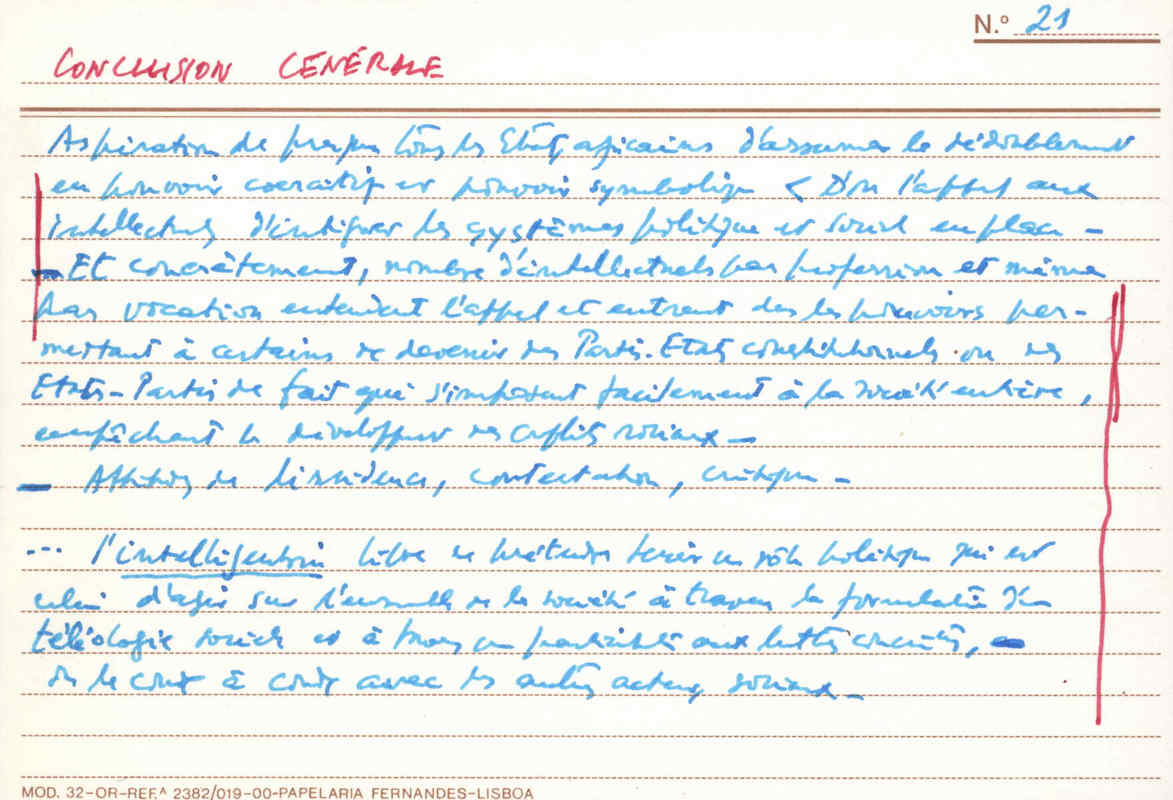 N.º 21
CONCLUSION GÉNÉRALE
Aspiration de presque tous les Etats africains d'assumer le dédoublement
en pouvoir coercitif et pouvoir symbolique < D'où l'appel aux
intellectuels d'intégrer les systèmes politique et social en place –
– Et concrètement, nombre d'intellectuels par profession et même
par vocation entendent l'appel et entrent dans les pouvoirs per-
mettant à certains de devenir des Partis-Etats constitutionnels ou des
Etats-Partis de fait qui s'imposent facilement à la société entière,
empêchant le développer des conflits sociaux –
– Attitudes de dissidence, contestation, critique –
... l'intelligentsia libre de prétendre tenir un rôle politique qui est
celui d'agir sur l'ensemble de la société à travers la formulation d'une
téléologie sociale et à travers aux luttes concrètes, –
ou le coude à coude avec les autres acteurs sociaux –
MOD. 32-OR-REF.ᴬ 2382/019-00-PAPELARIA FERNANDES-LISBOA